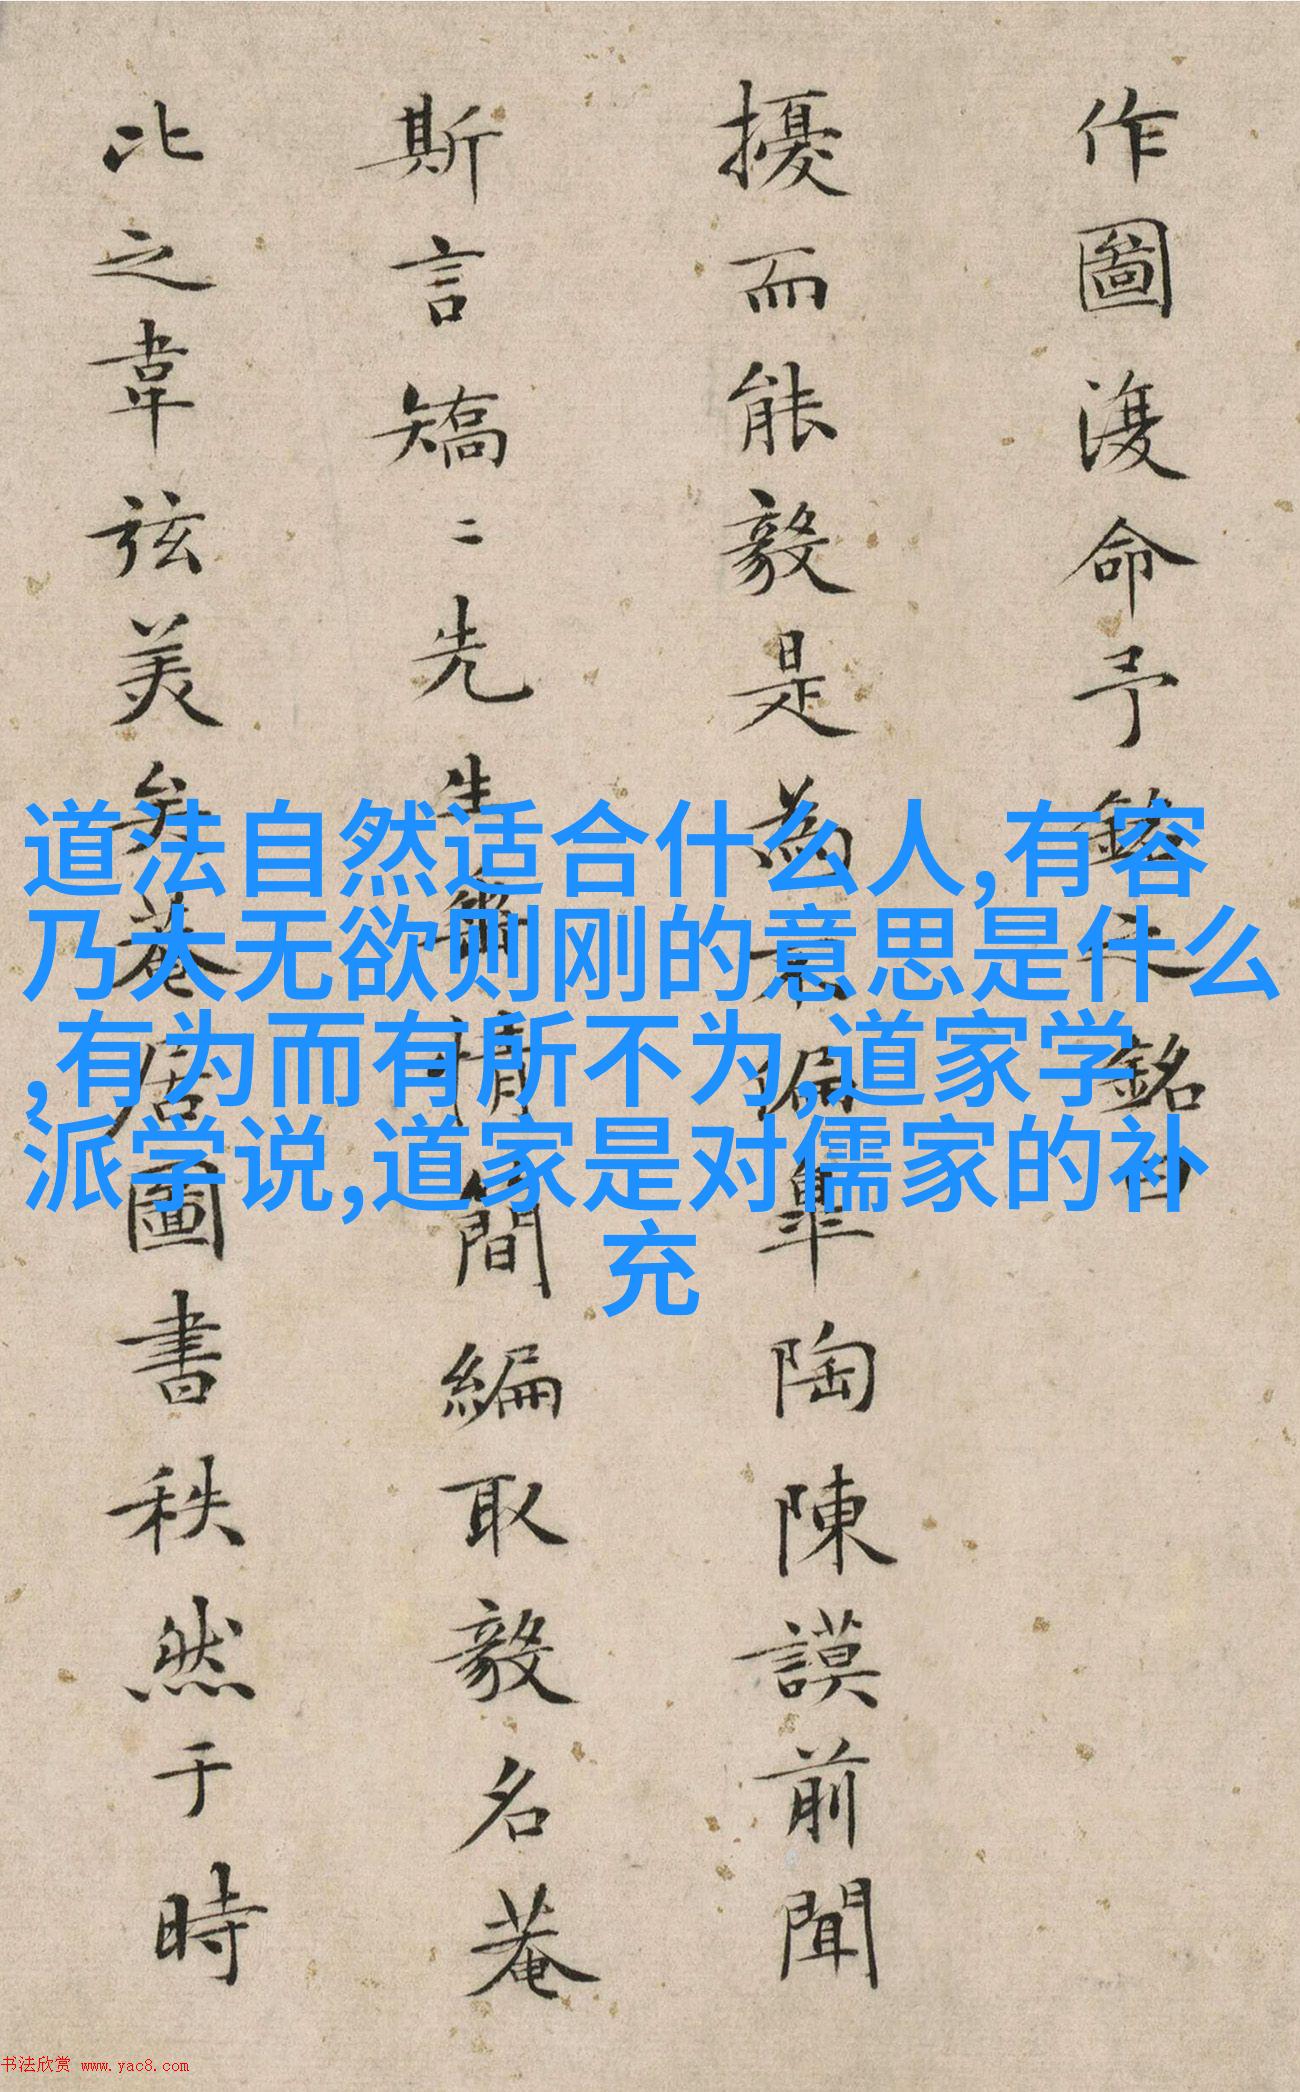 作圖復命予銘之銘曰
擾而能毅是為不偏皋陶陳謨前聞
斯言矯二先生雅情簡編取毅名菴
比之韋弦美矣菴居圖書秩然于時
道法自然适合什么人,有容
乃大无欲则刚的意思是什么
,有为而有所不为,道家学
派学说,道家是对儒家的补
充
书法欣赏 www.yac8.com